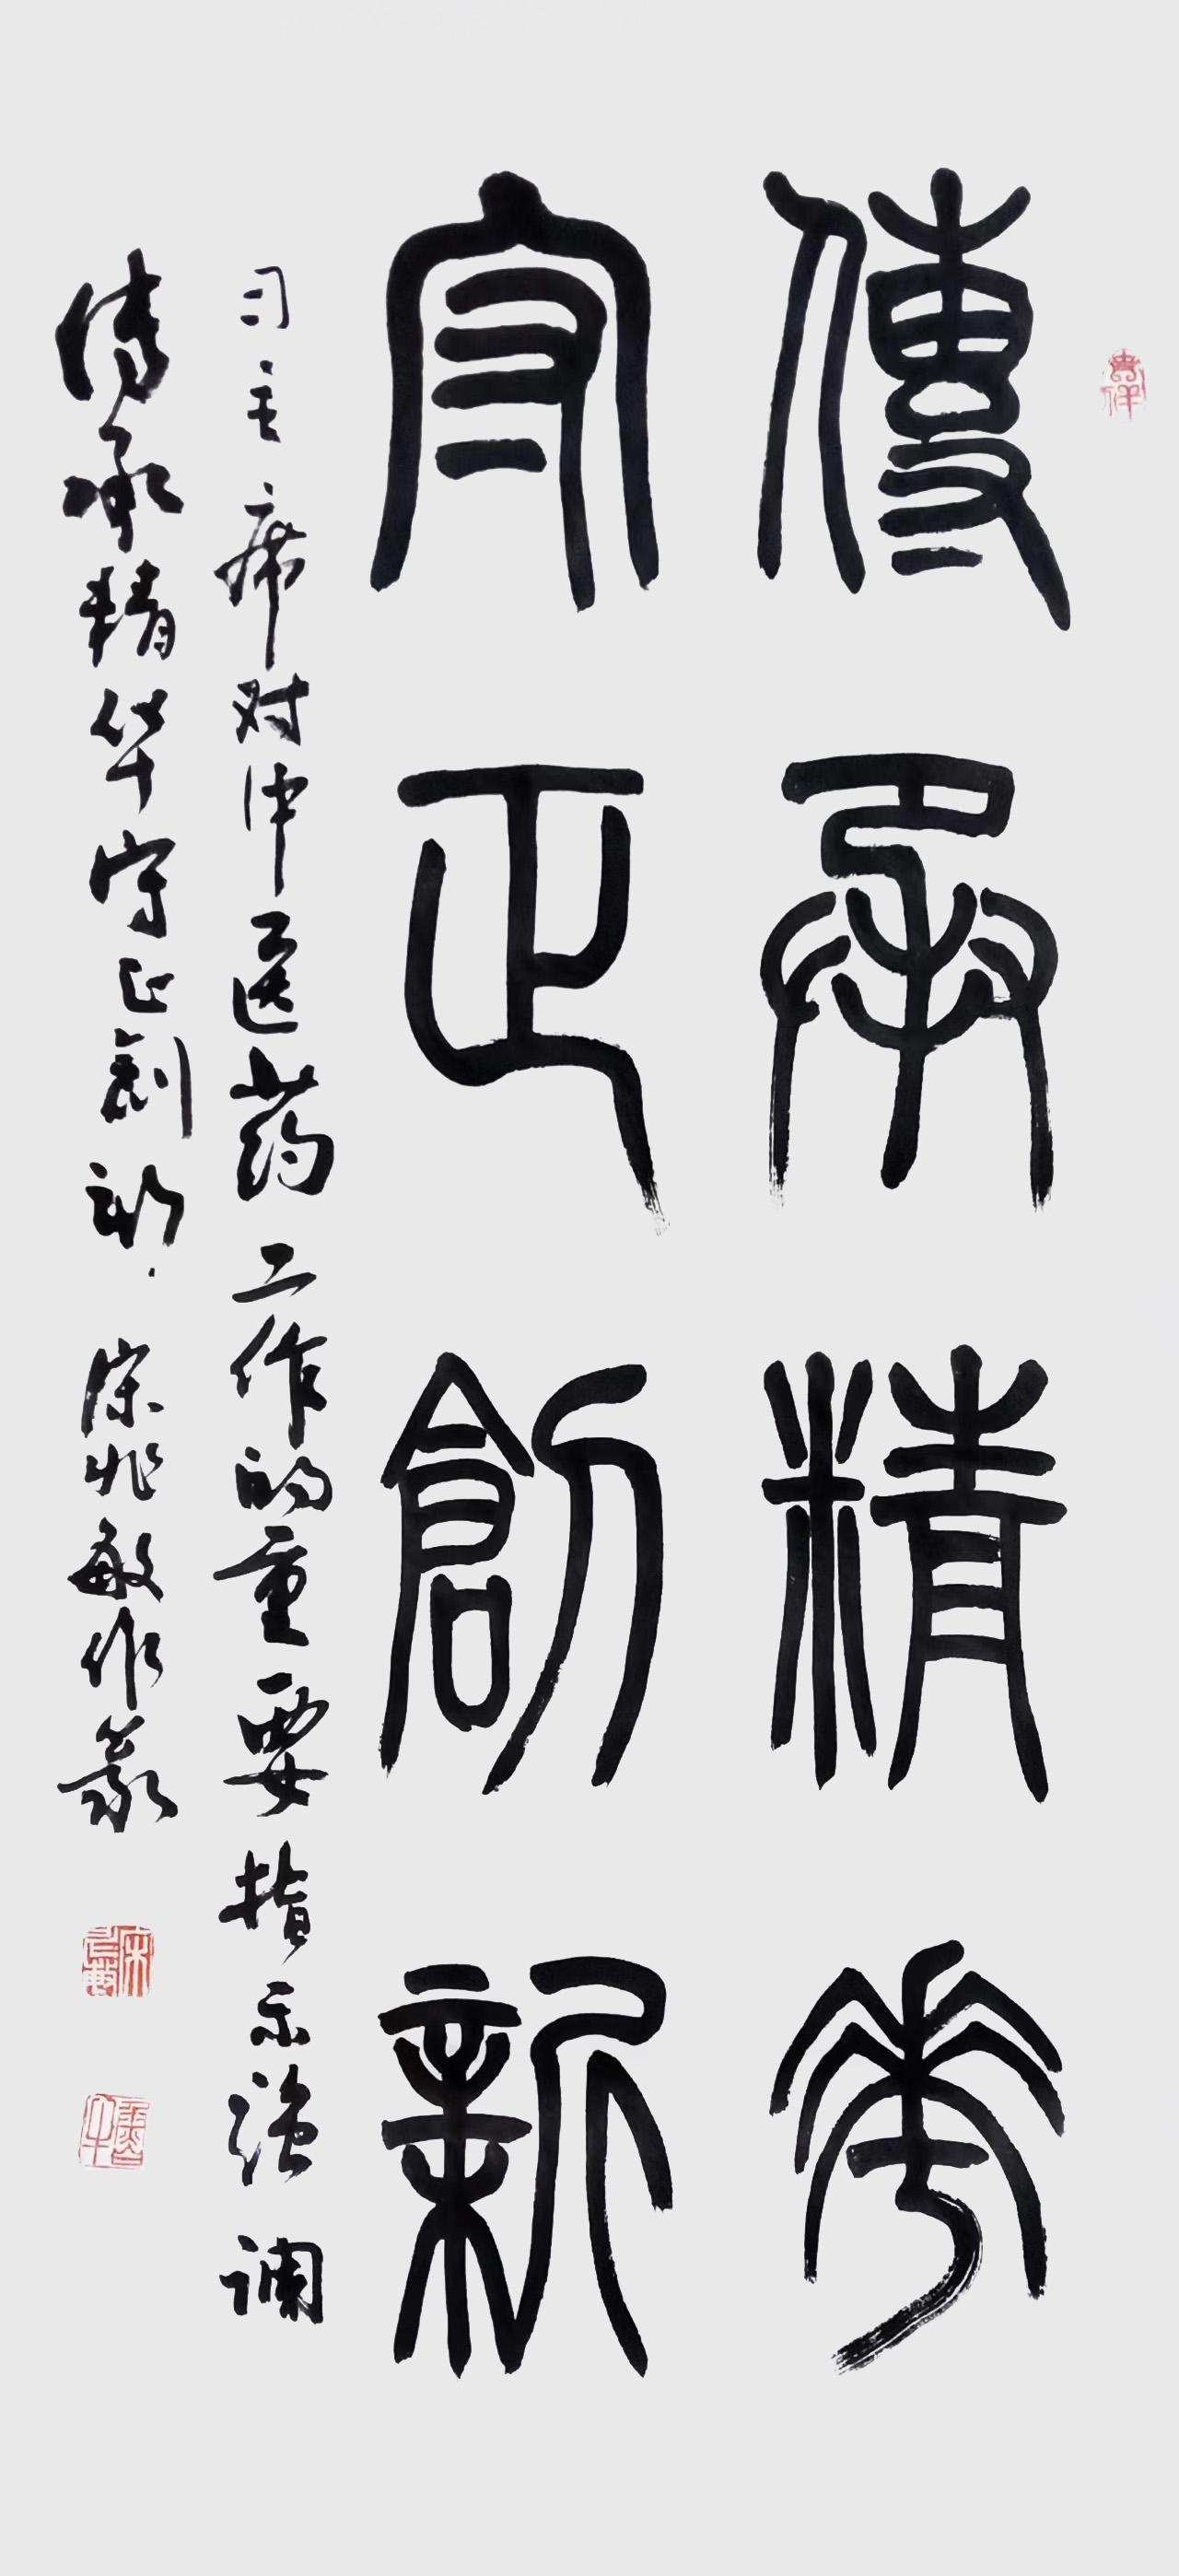 傳承精華
守正創新
习主席对中医药工作的重要指示强调
传承精华守正创新 宋兆敏作篆